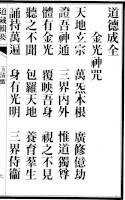 道德成全
金光神咒
天地玄宗　萬炁本根　廣修億劫
證吾神通　三界內外　惟道獨尊
體有金光　覆映吾身　視之不見
聽之不聞　包羅天地　養育羣生
誦持萬遍　身有光明　三界侍衛
道藏輯要